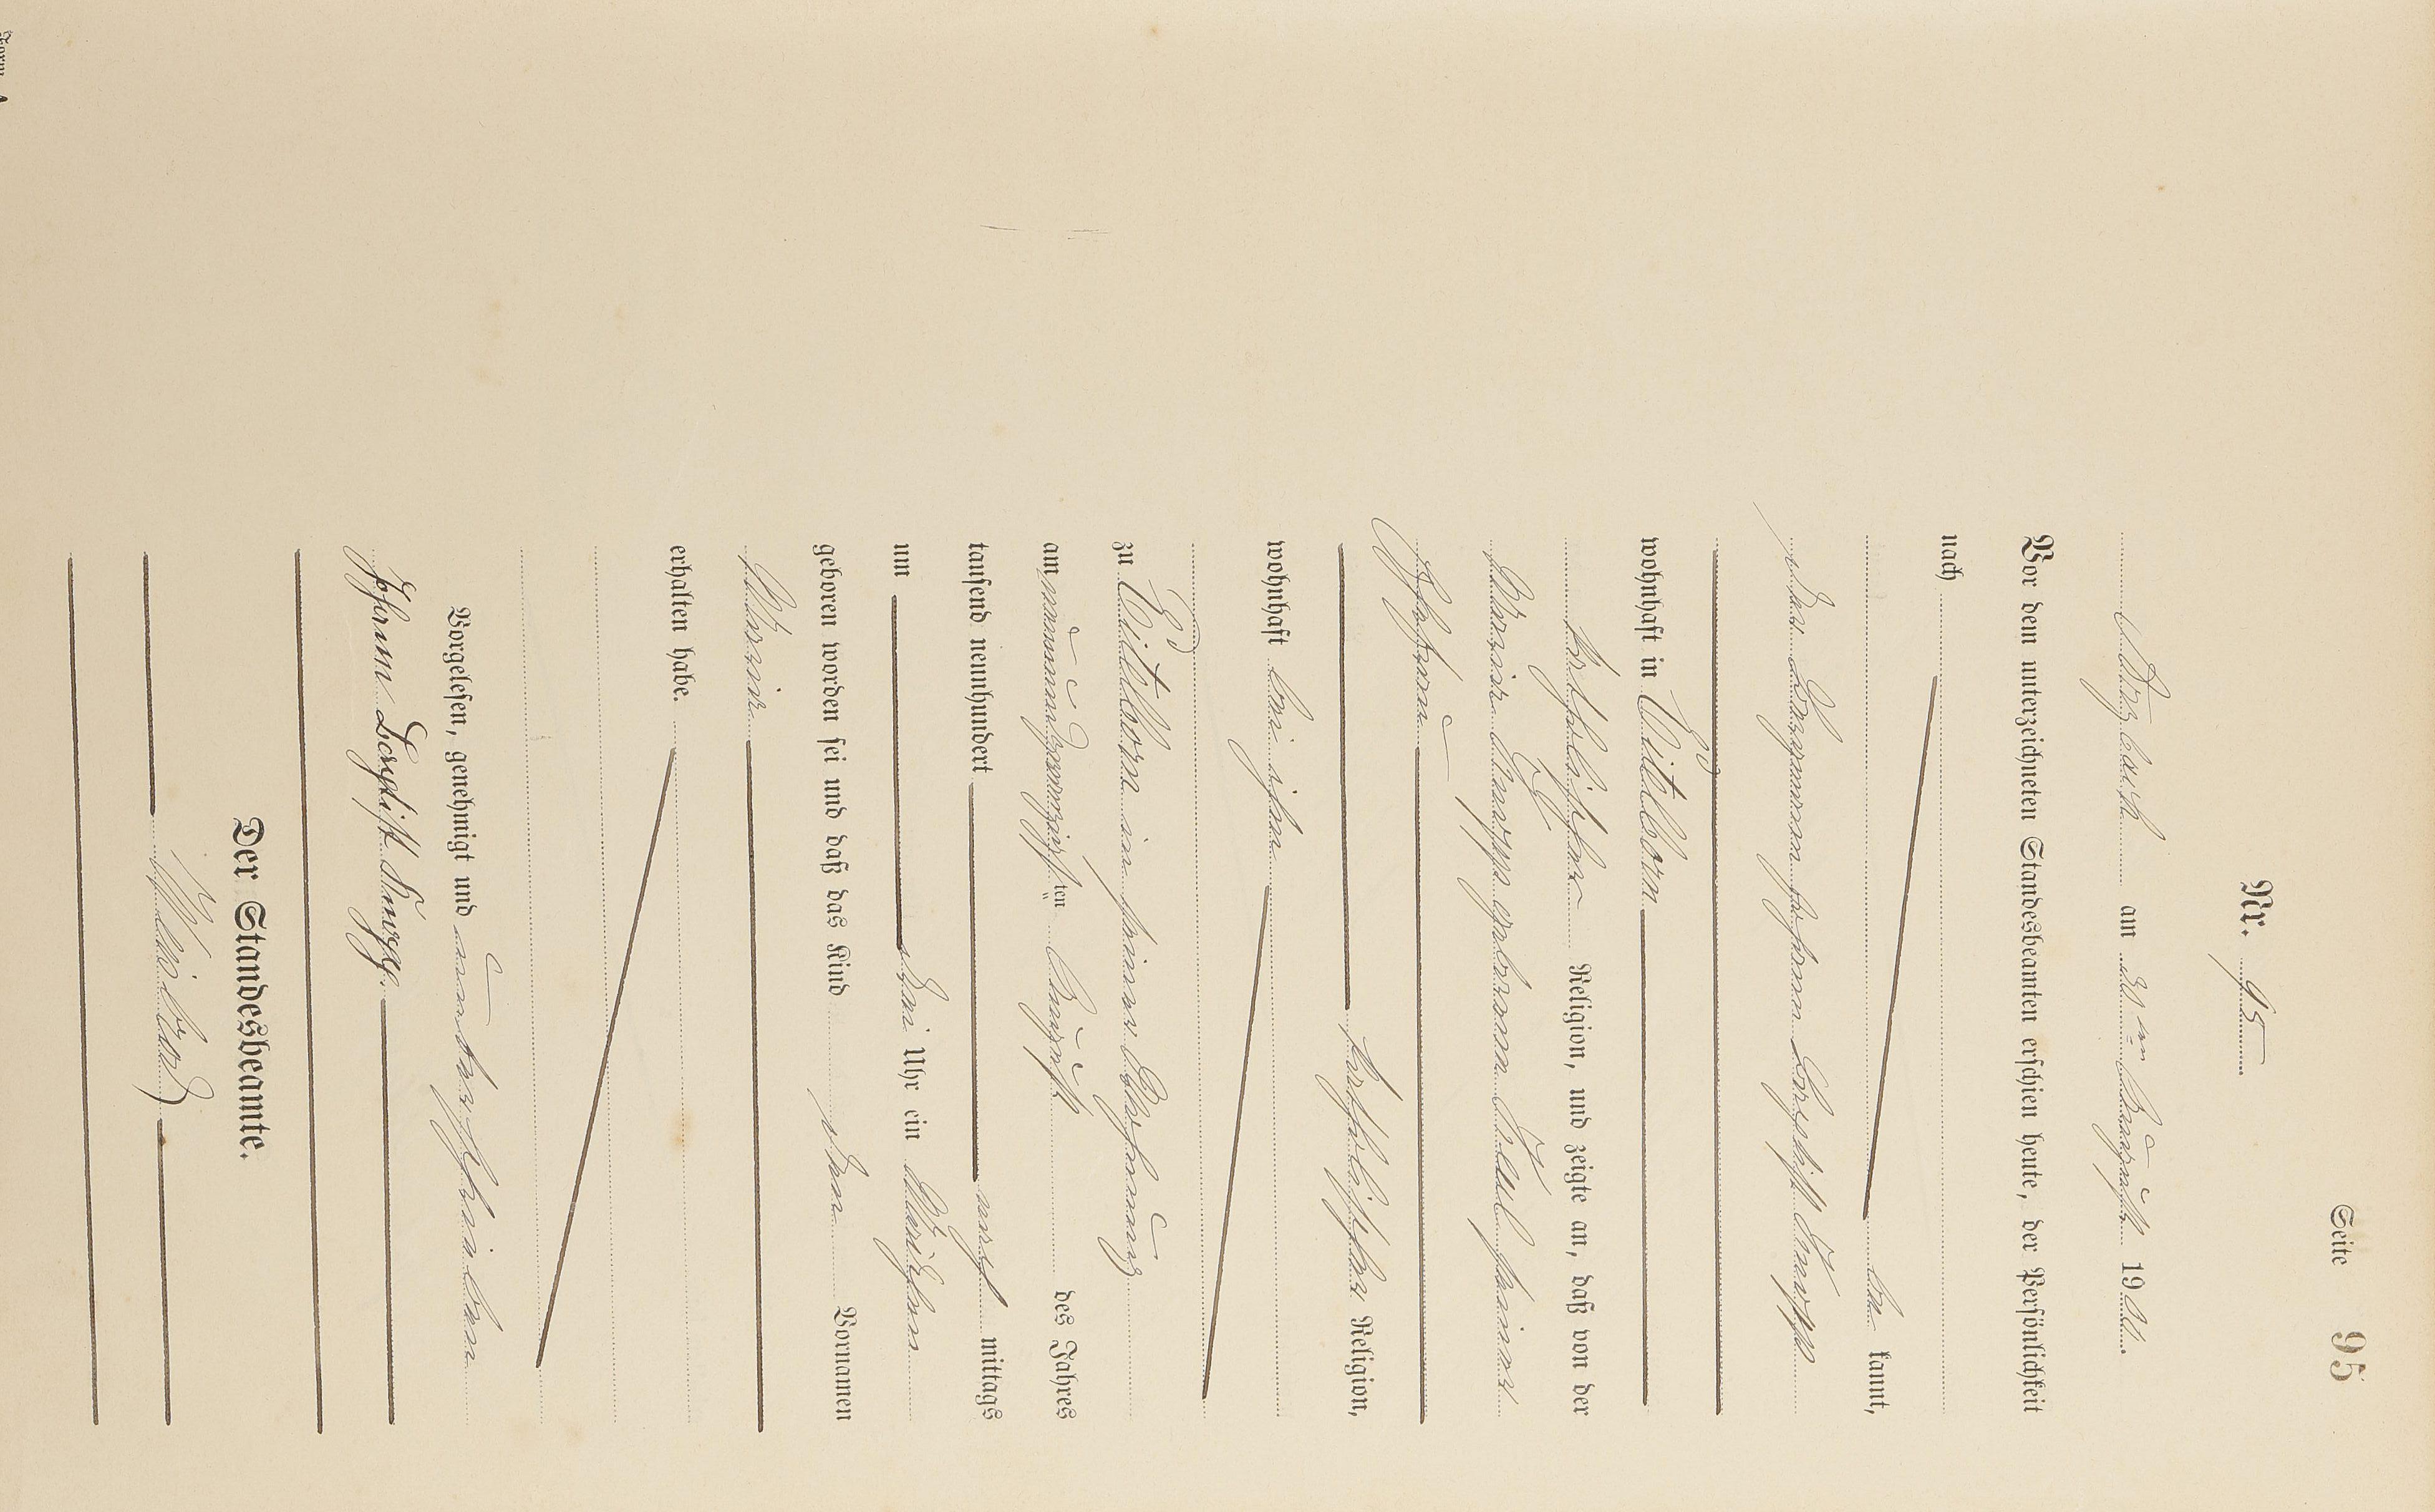 Seite 95
Nr. 95
am 30ten August 1900.
Vor dem unterzeichneten Standesbeamten erschien heute, der Persönlichkeit
nach
be kannt,
der Bergmann Johann Baptist Knopp
wohnhaft in Eidelborn
katholischer Religion, und zeigte an, daß von der
Maria Knopp geborenen Paul seiner
Ehefrau
katholischer Religion,
wohnhaft bei ihm
zu Eidelborn in seiner Wohnung
am neunundzwanzigsten August des Jahres
tausend neunhundert nach mittags
um drei Uhr ein Mädchen
geboren worden sei und daß das Kind den Vornamen
Maria
erhalten habe.
Vorgelesen, genehmigt und unterschrieben
Johann Baptist Knopp.
Der Standesbeamte.
Form. A